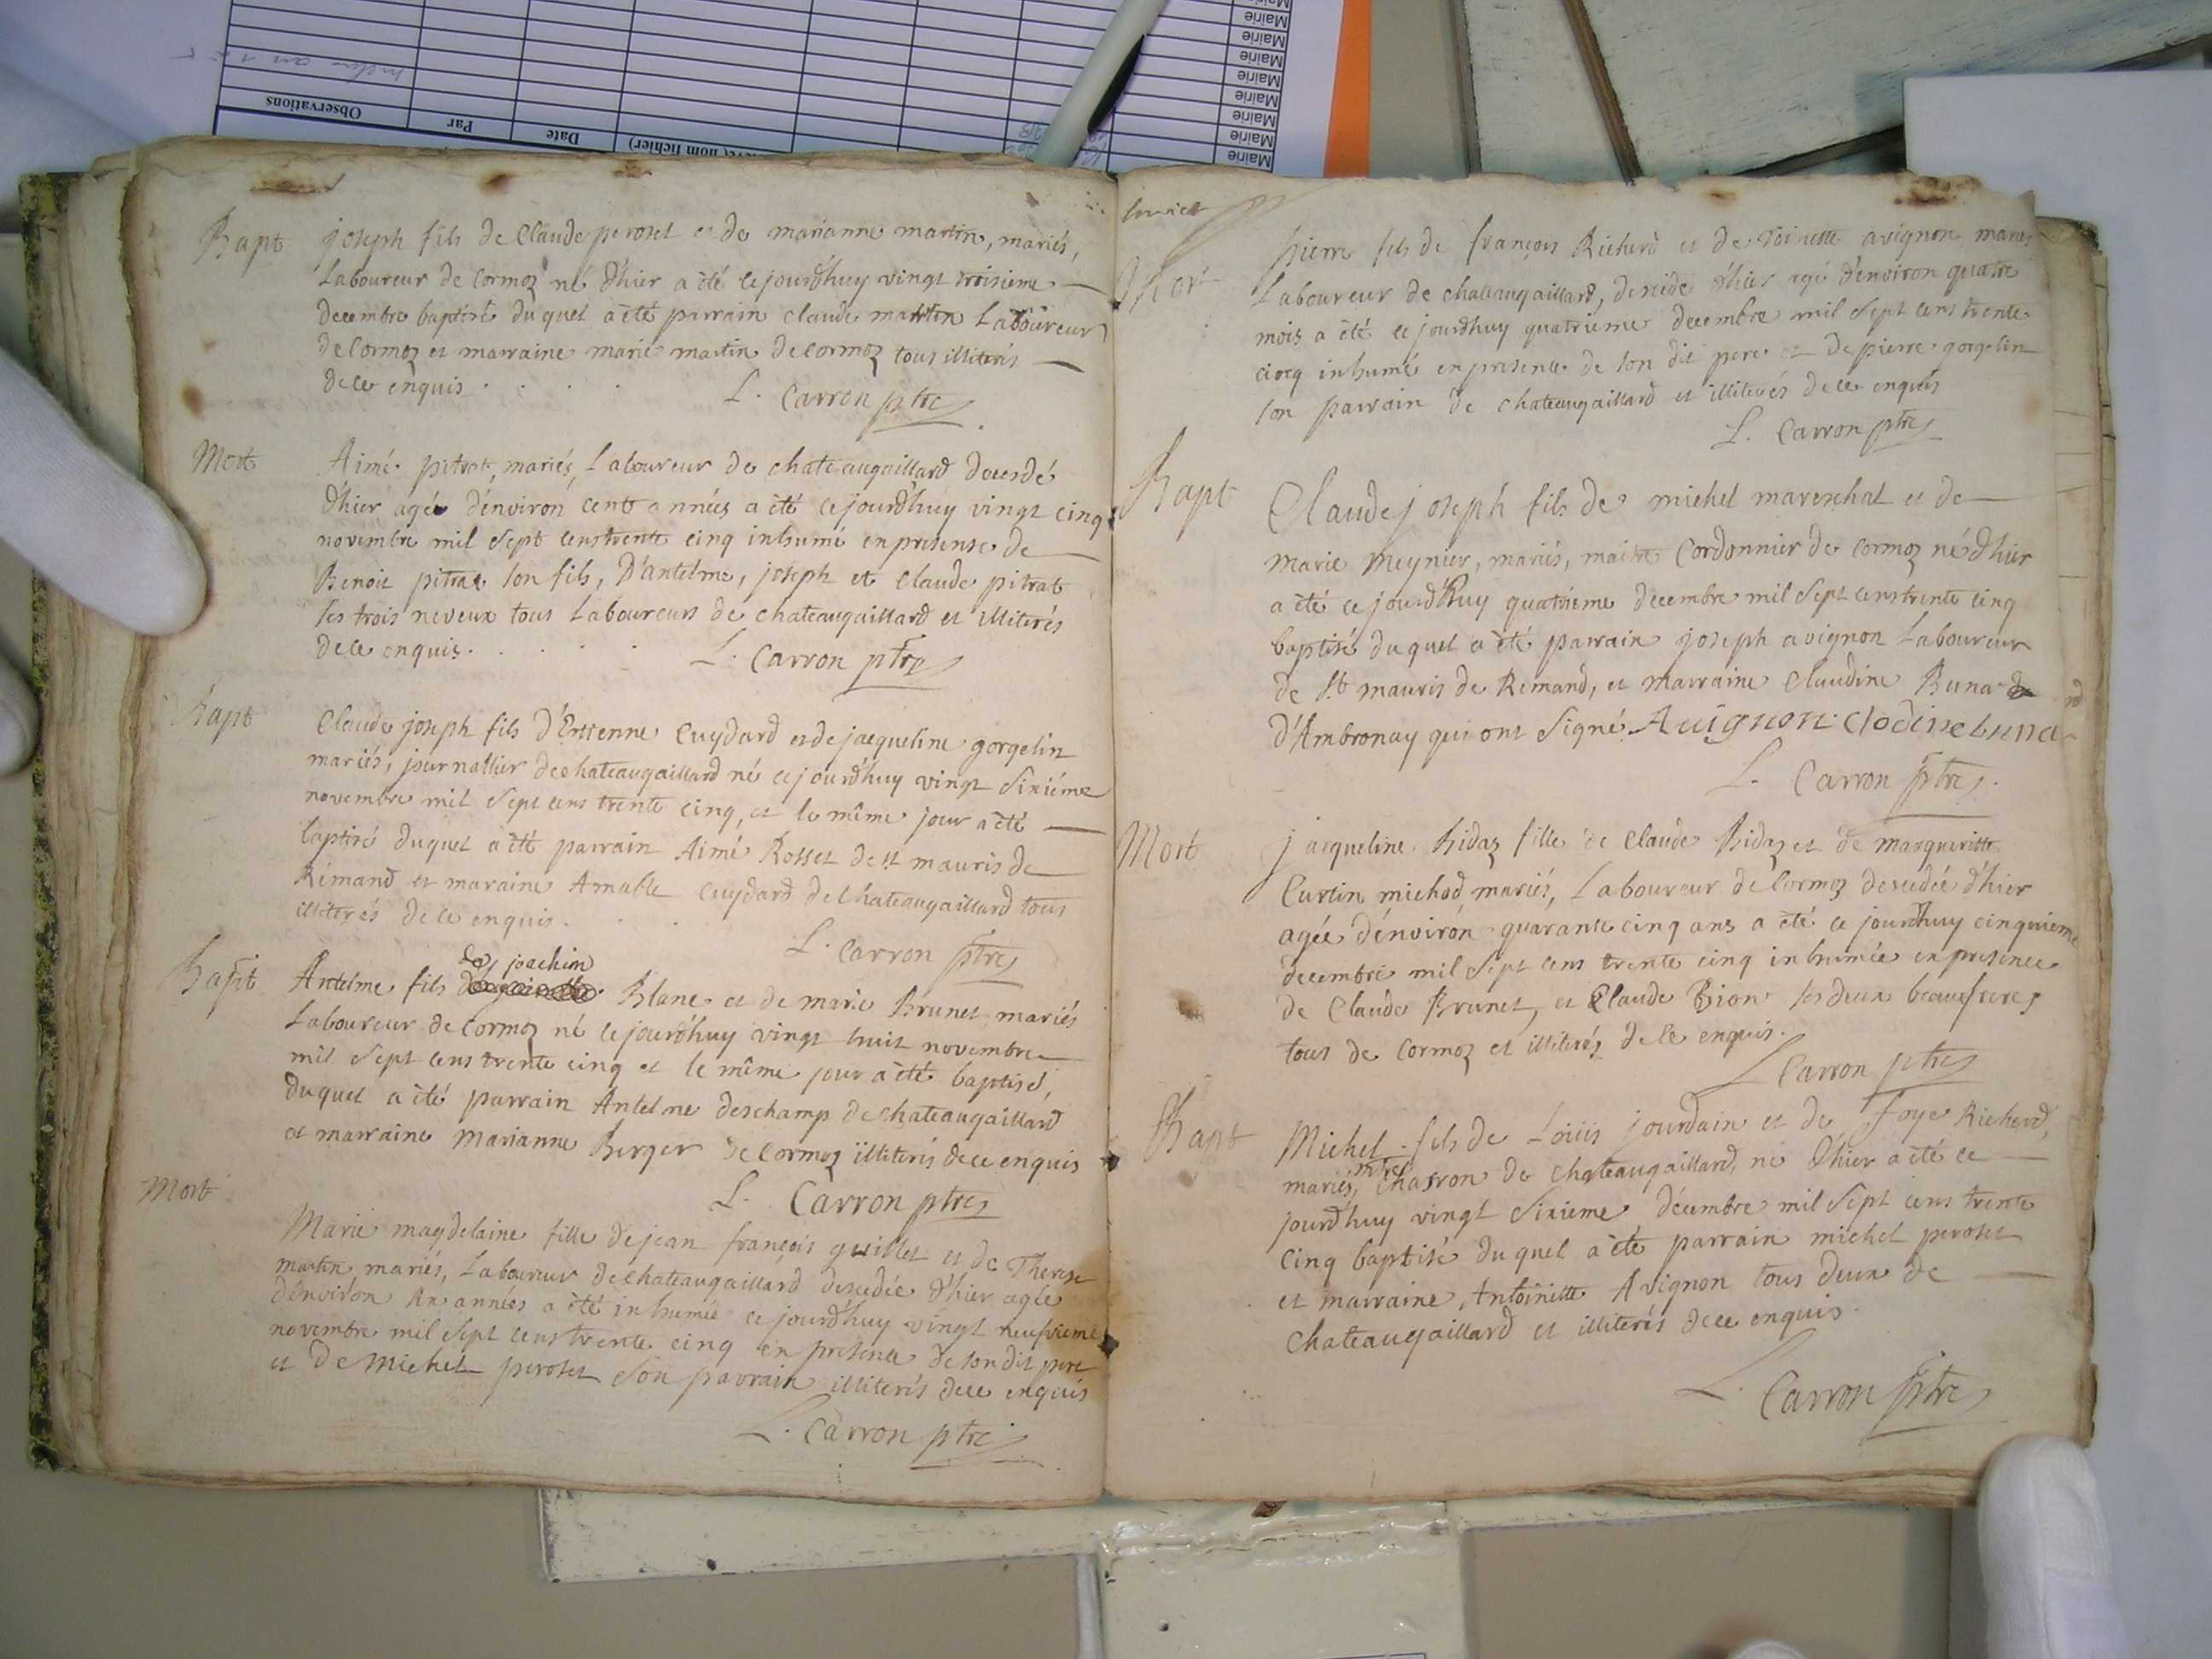 Mairie
Mairie
Mairie
Mairie
Mairie
Mairie
Mairie
Observations
Par
Date
nom fichier)
Bapt
joseph fils de Claude perosel et de marianne martin, mariés,
Laboureur de Cormoz né d'hier a été cejourd'huy vingt troisieme
decembre baptisé duquel a été parrain claude martin Laboureur
de Cormoz et marraine marie martin de Cormoz tous illiterés
de ce enquis . . . .
L. Carron ptre
Mort
Aimé pitrat, mariés, Laboureur de chateaugaillard decedé
d'hier agée d'environ cent années a été cejourd'huy vingt cinq
novembre mil sept cens trente cinq inhumé en presense de
Benoit pitrat son fils, D'antelme, joseph et claude pitrat
ses trois neveux tous Laboureurs de chateaugaillard et illiterés
de ce enquis . . . .
L. Carron ptre
Bapt
Claude joseph fils d'Ettienne Cuydard et de jacqueline gorgelin
mariés, journallier de chateaugaillard né cejourd'huy vingt sixiéme
novembre mil sept cens trente cinq, et le même jour a été
baptisé duquel a été parrain Aimé Rosset de st mauris de
Rémand et maraine Amable Cuydard de chateaugaillard tous
illiterés de ce enquis . . .
L. Carron ptre
Bapt
joachim
Antelme fils Blanc et de marie Brunet mariés
Laboureur de Cormoz né cejourd'huy vingt huit novembre
mil sept cens trente cinq et le même jour a été baptisé,
duquel a été parrain Antelme deschamp de chateaugaillard
et marraine Marianne Berger de Cormoz illiterés de ce enquis
L. Carron ptre
Mort
Marie magdelaine fille de jean françois guillet et de Therese
martin mariés, Laboureur de chateaugaillard decedée d'hier agée
d'environ six années a été inhumée ce jourd'huy vingt neufvieme
novembre mil sept cens trente cinq en presence de son dit pere
et de Michel peroset son parrain illiterés de ce enquis
L. Carron ptre
Mort
pierre fils de françois Richerd et de Toinette avignon mariés
Laboureur de chateaugaillard, decedé d'hier agé d'environ quatre
mois a été ce jourdhuy quatriéme decembre mil sept cens trente
cincq inhumé en presence de son dit pere et de pierre gorgelin
son parrain de chateaugaillard et illiterés de ce enquis
L. Carron ptre
Bapt
Claude joseph fils de michel mareschal et de
marie Meynier, mariés, maitre Cordonnier de Cormoz né d'hier
a été ce jourd'huy quatriéme decembre mil sept cens trente cinq
baptisé duquel a été parrain joseph avignon Laboureur
de st mauris de Remand, et marraine Claudine Buna
d'Ambronay qui ont signé Auignon clodine buna
L. Carron ptre
Mort
jacqueline Bidaz fille de Claude Bidaz et de margueritte
Curtin michod mariés, Laboureur de Cormoz decedée d'hier
agée d'environ quarante cinq ans a été ce jourdhuy cinquieme
decembre mil sept cens trente cinq inhumée en presence
de Claude Brunet, et Claude Bion ses deux beaufreres
tous de Cormoz et illiterés de ce enquis.
L Carron ptre
Bapt
Michel fils de Loüis jourdain et de Foye Richerd,
mtre
mariés, Charron de chateaugaillard, né d'hier a été ce
jourd'huy vingt sixieme décembre mil sept cens trente
cinq baptisé duquel a été parrain michel peroset
et marraine, Antoinette Avignon tous deux de
chateaugaillard et illiterés de ce enquis.
L. Carron ptre